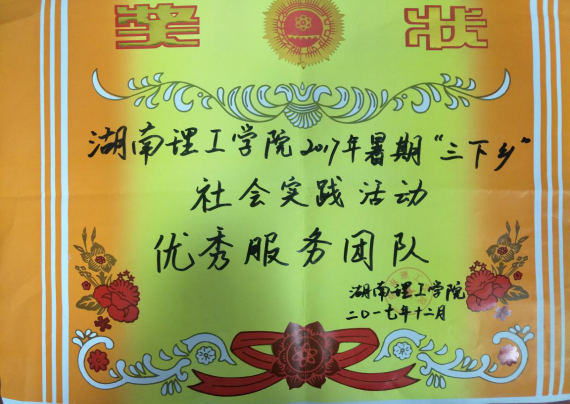 奖状
湖南理工学院2017年暑期“三下乡”
社会实践活动
优秀服务团队
湖南理工学院
二〇一七年十二月